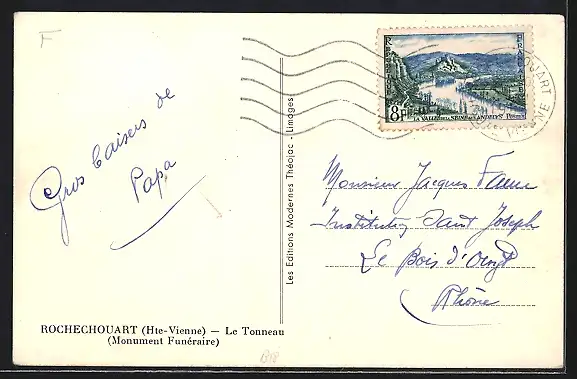 F
Gros baisers de
Papa
ROCHECHOUART (Hte-Vienne) — Le Tonneau
(Monument Funéraire)
Les Editions Modernes Théojac - Limoges
8F
LA VALLÉE DE LA SEINE AUX ANDELYS Postes
VIENNE
Monsieur Jacques Faure
Institution Saint Joseph
Le Bois d'Oingt
Rhône